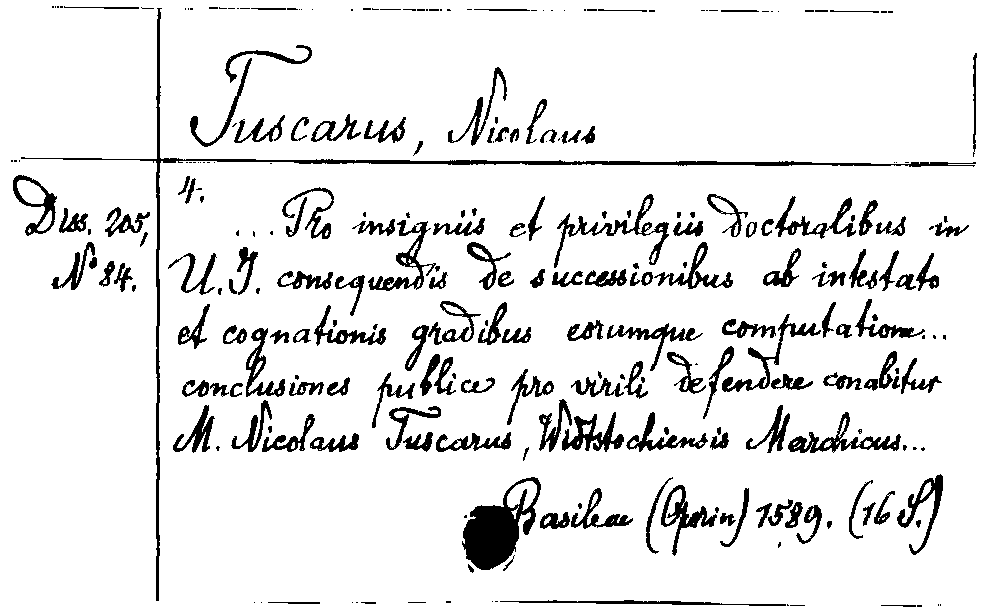 Tuscarus, Nicolaus
Diss. 205,
No 84.
4.
... Pro insigniis et privilegiis doctoralibus in
U. J. consequendis de successionibus ab intestato
et cognationis gradibus eorumque computatione...
conclusiones publice pro virili defendere conabitur
M. Nicolaus Tuscarus, Marchicus...
Basileae (Oporin) 1589. (16 S.)